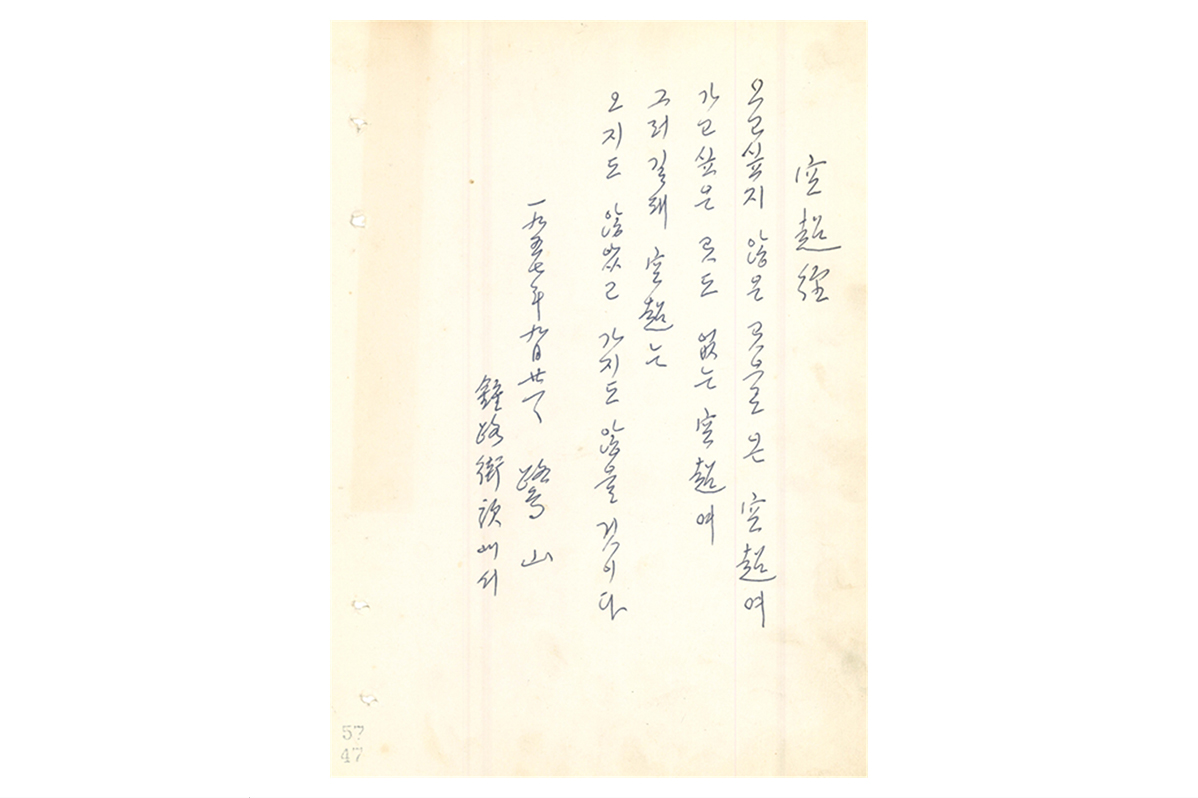 空超經
오고싶지 않은 곳으로 온 空超여
가고싶은 곳도 없는 空超여
그러길래 空超는
오지도 않았고 가지도 않을 것이다
一九五七年九月廿 鷺山
鍾路街頭에서
57
47